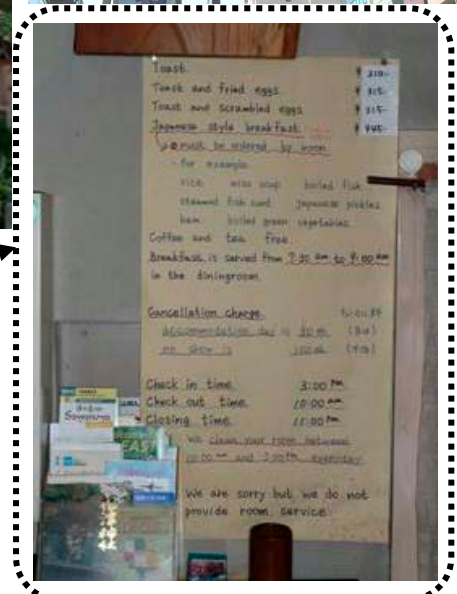 Toast ¥ 210-
Toast and fried eggs ¥ 315-
Toast and scrambled eggs ¥ 315-
Japanese style breakfast ¥ 945-
must be ordered by noon
for example
rice miso soup boiled fish
steamed fish curd Japanese pickles
ham boiled green vegetables
Coffee and tea free.
Breakfast is served from 7:30 am to 9:00 am
in the diningroom.
Cancellation charge
accommodation day is
no show is
Check in time. 3:00 PM
Check out time. 10:00 AM
Closing time. 11:00 PM
We clean your room between
10:00 am and 3:00 PM everyday
We are sorry but we do not
provide room service.